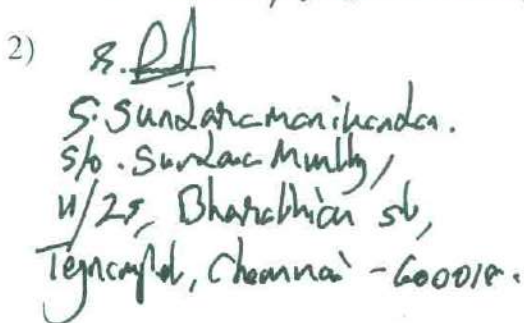 2)
S. Sundaramanikandan.
S/o. Sundara Murthy,
Bharathiar st,
Teynampet, Chennai - 600018.